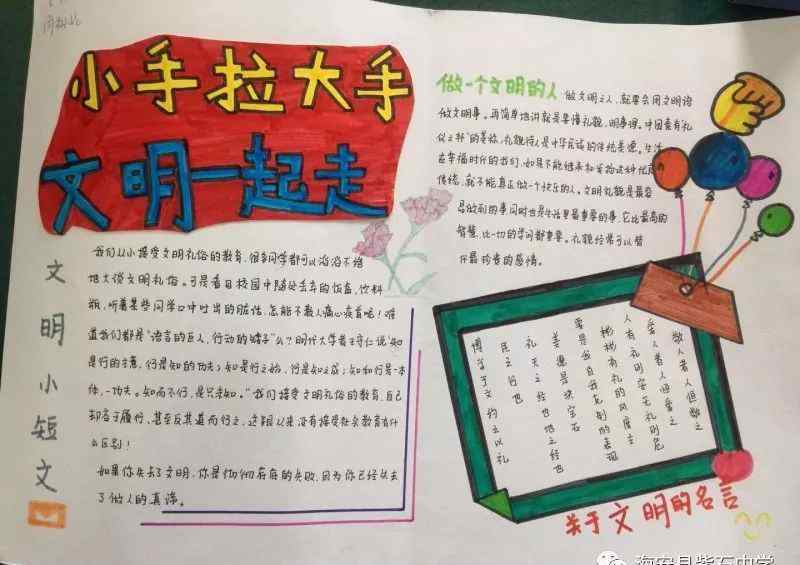 小手拉大手
文明一起走
文明小短文
我们从小接受文明礼俗的教育，很多同学都可以滔滔不绝
地大谈文明礼俗。可是看到校园中随处丢弃的饭盒，饮料
瓶，听着某些同学口中吐出的脏话，怎能不教人痛心疾首呢！难
道我们都是“语言的巨人，行动的矮子”么？明代大学者王守仁说“知
是行的主意，行是知的功夫；知是行之始，行是知之成；知和行是一本
体，一功夫。知而不行，是只未知。”我们接受文明礼俗的教育，自己
却怠于履行，甚至反其道而行之，这跟从来没有接受过教育有什
么区别！
如果你失去了文明，你是彻彻底底的失败，因为你已经失去
了做人的真谛。
做一个文明的人
做文明之人，就要会用文明语
做文明事。再简单地讲就是要懂礼貌，明事理。中国素有礼
仪之邦”的美称，礼貌待人是中华民族的传统美德。生活
在幸福时代的我们，如果不能继承和发扬这种优良的
传统，就不能真正做一个快乐的人。文明礼貌是最容
易做到的事同时也是生活里最重要的事，它比最高的
智慧，比一切的学问都重要。礼貌经常可以替
代最珍贵的感情。
敬人者人恒敬之
爱人者人恒爱之
人有礼则安无礼则危
彬彬有礼的风度主
要是自我克制的表现
美德是块宝石
礼天之经也地之经也
民之行也
博学于文约之以礼
关于文明的名言
海安县紫石中学